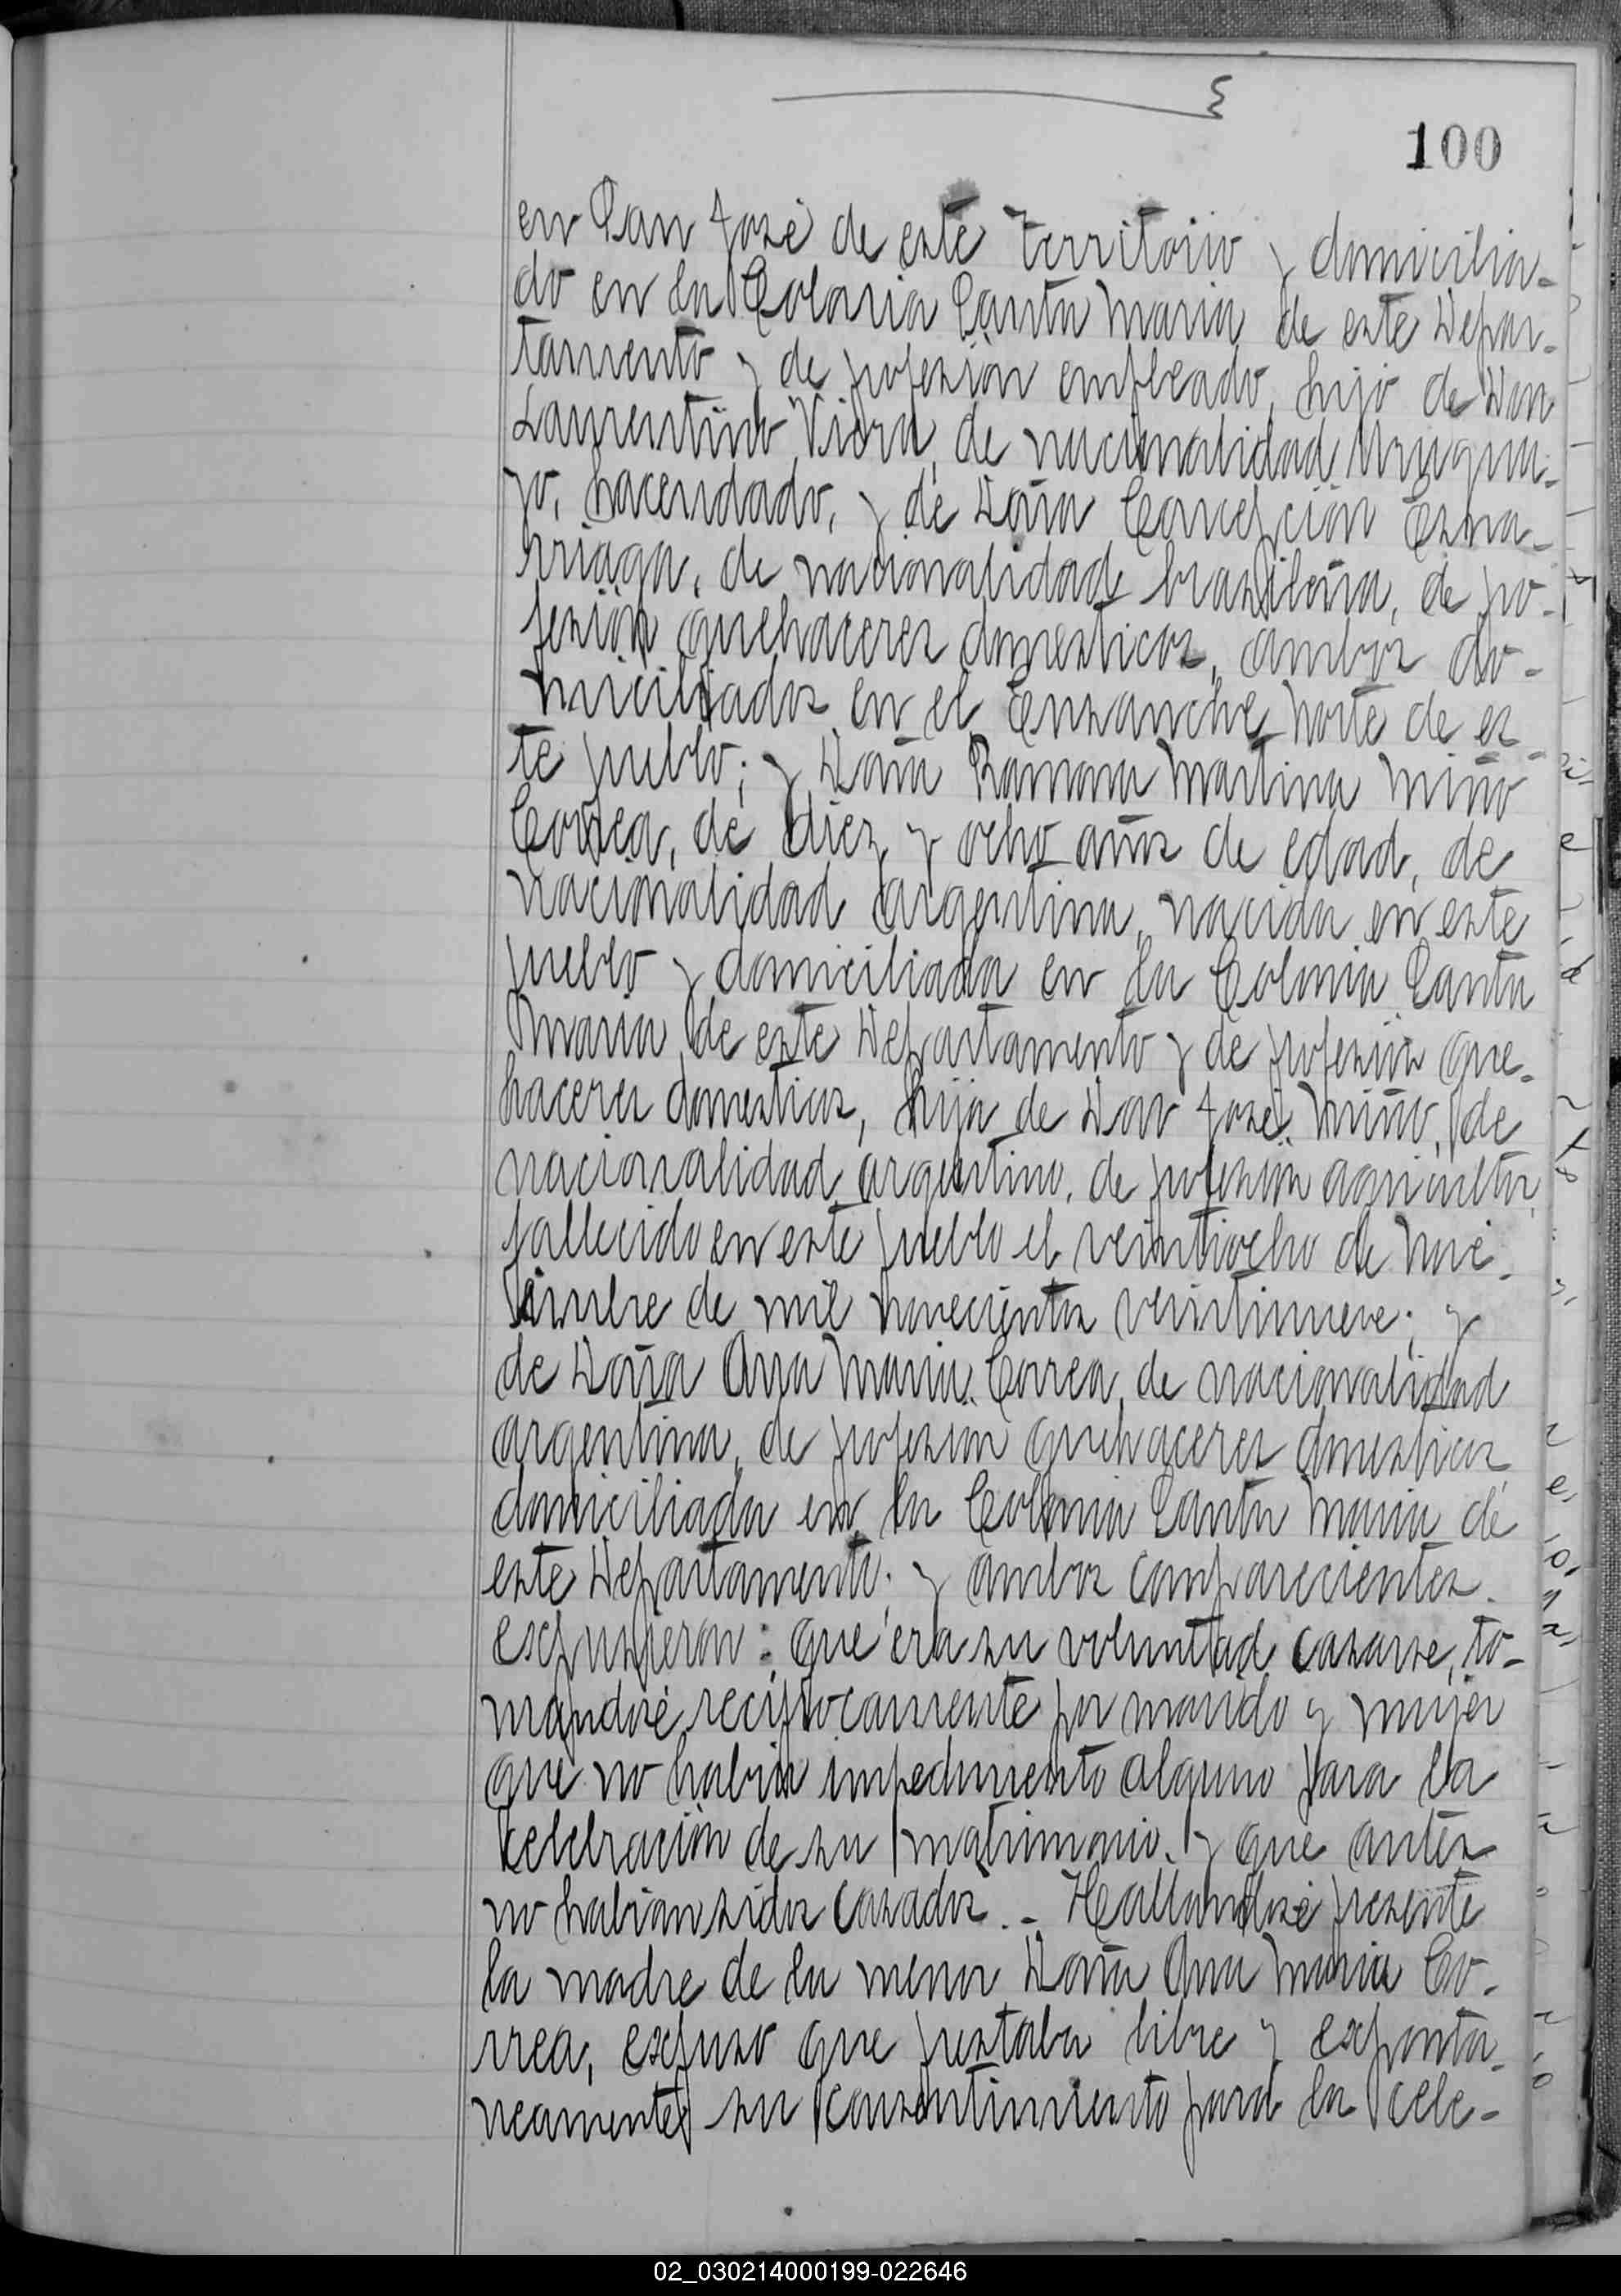 100
en San José de este territorio y domicilia-
do en la Colonia Santa Maria de este Depar-
tamento y de profesión empleado, hijo de Don
Laurentino Viera, de nacionalidad Urugua-
yo, hacendado, y de Doña Concepción
de nacionalidad brasileña, de pro-
fesión quehaceres domesticos, ambos do-
miciliados en el Ensanche Norte de es-
te pueblo; y Doña Ramona Martina Miño
Correa, de diez y ocho años de edad, de
nacionalidad argentina, nacida en este
pueblo y domiciliada en la Colonia Santa
Maria de este Departamento y de profesión que-
haceres domesticos, hija de Don José Miño, de
nacionalidad argentino, de profesión agricultor,
fallecido en este pueblo el veintiocho de Novi-
embre de mil novecientos veintinueve; y
de Doña Ana Maria Correa, de nacionalidad
argentina, de profesion quehaceres domesticos
domiciliada en la Colonia Santa Maria de
este Departamento; y ambos comparecientes
expusieron: que era su voluntad casarse, to-
mandose reciprocamente por marido y mujer
que no habia impedimento alguno para la
celebración de su matrimonio, y que antes
no habian sidos casados.- Hallandose presente
la madre de la menor Doña Ana Maria Co-
rrea, expuso que prestaba libre y exponta-
neamente su consentimiento para la cele-
02_030214000199-022646